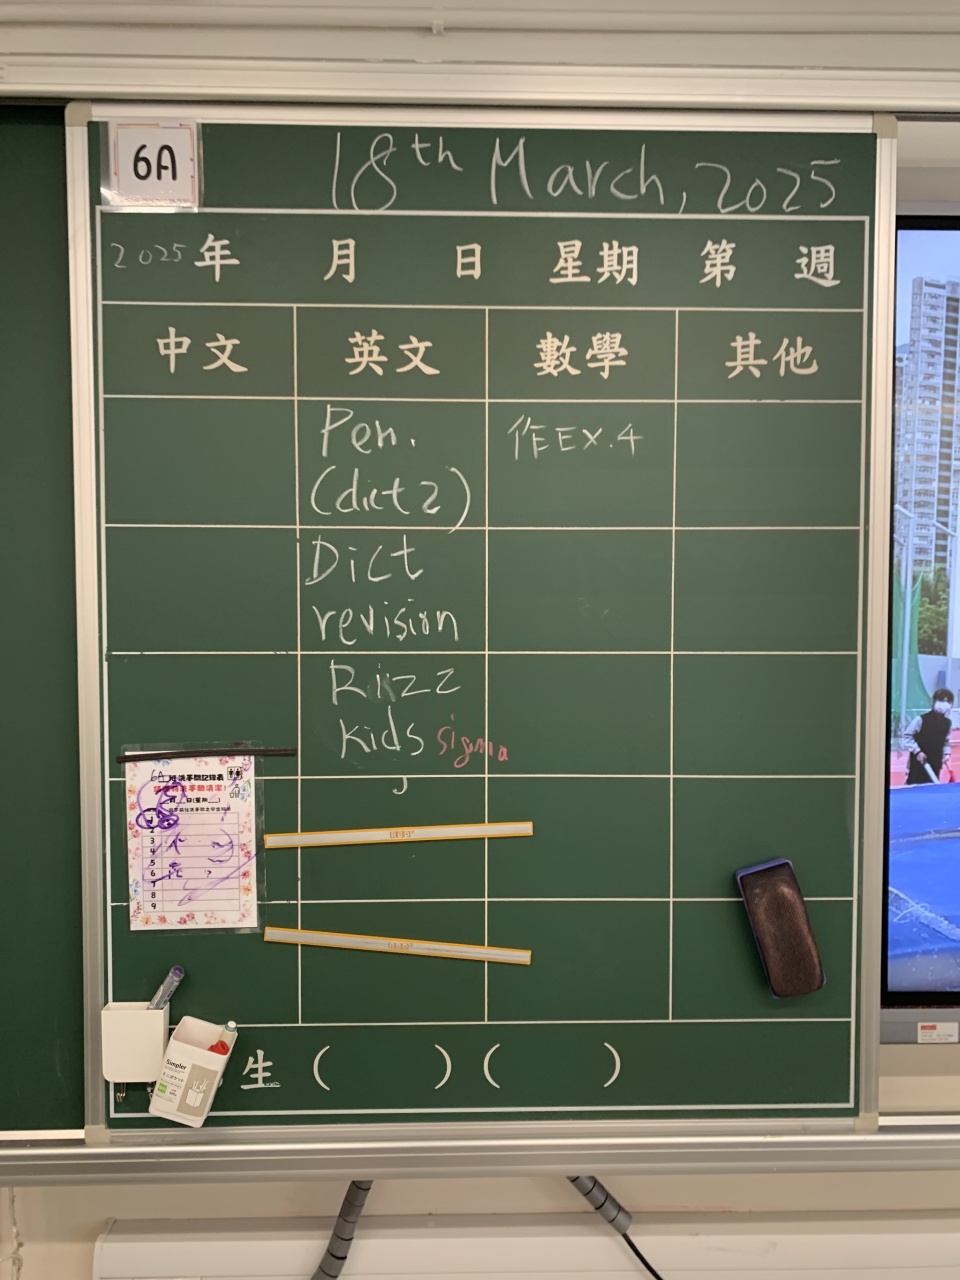 6A
18th March, 2025
2025 年 月 日 星期 第 週
中文 英文 數學 其他
Pen.
(dict 2)
作EX.4
Dict
revision
Rizz
kids sigma
6A 班洗手間記錄表
月 日(星期 )
3
4
5
6
7
8
9
不
?
生 ( ) ( )
Simpler